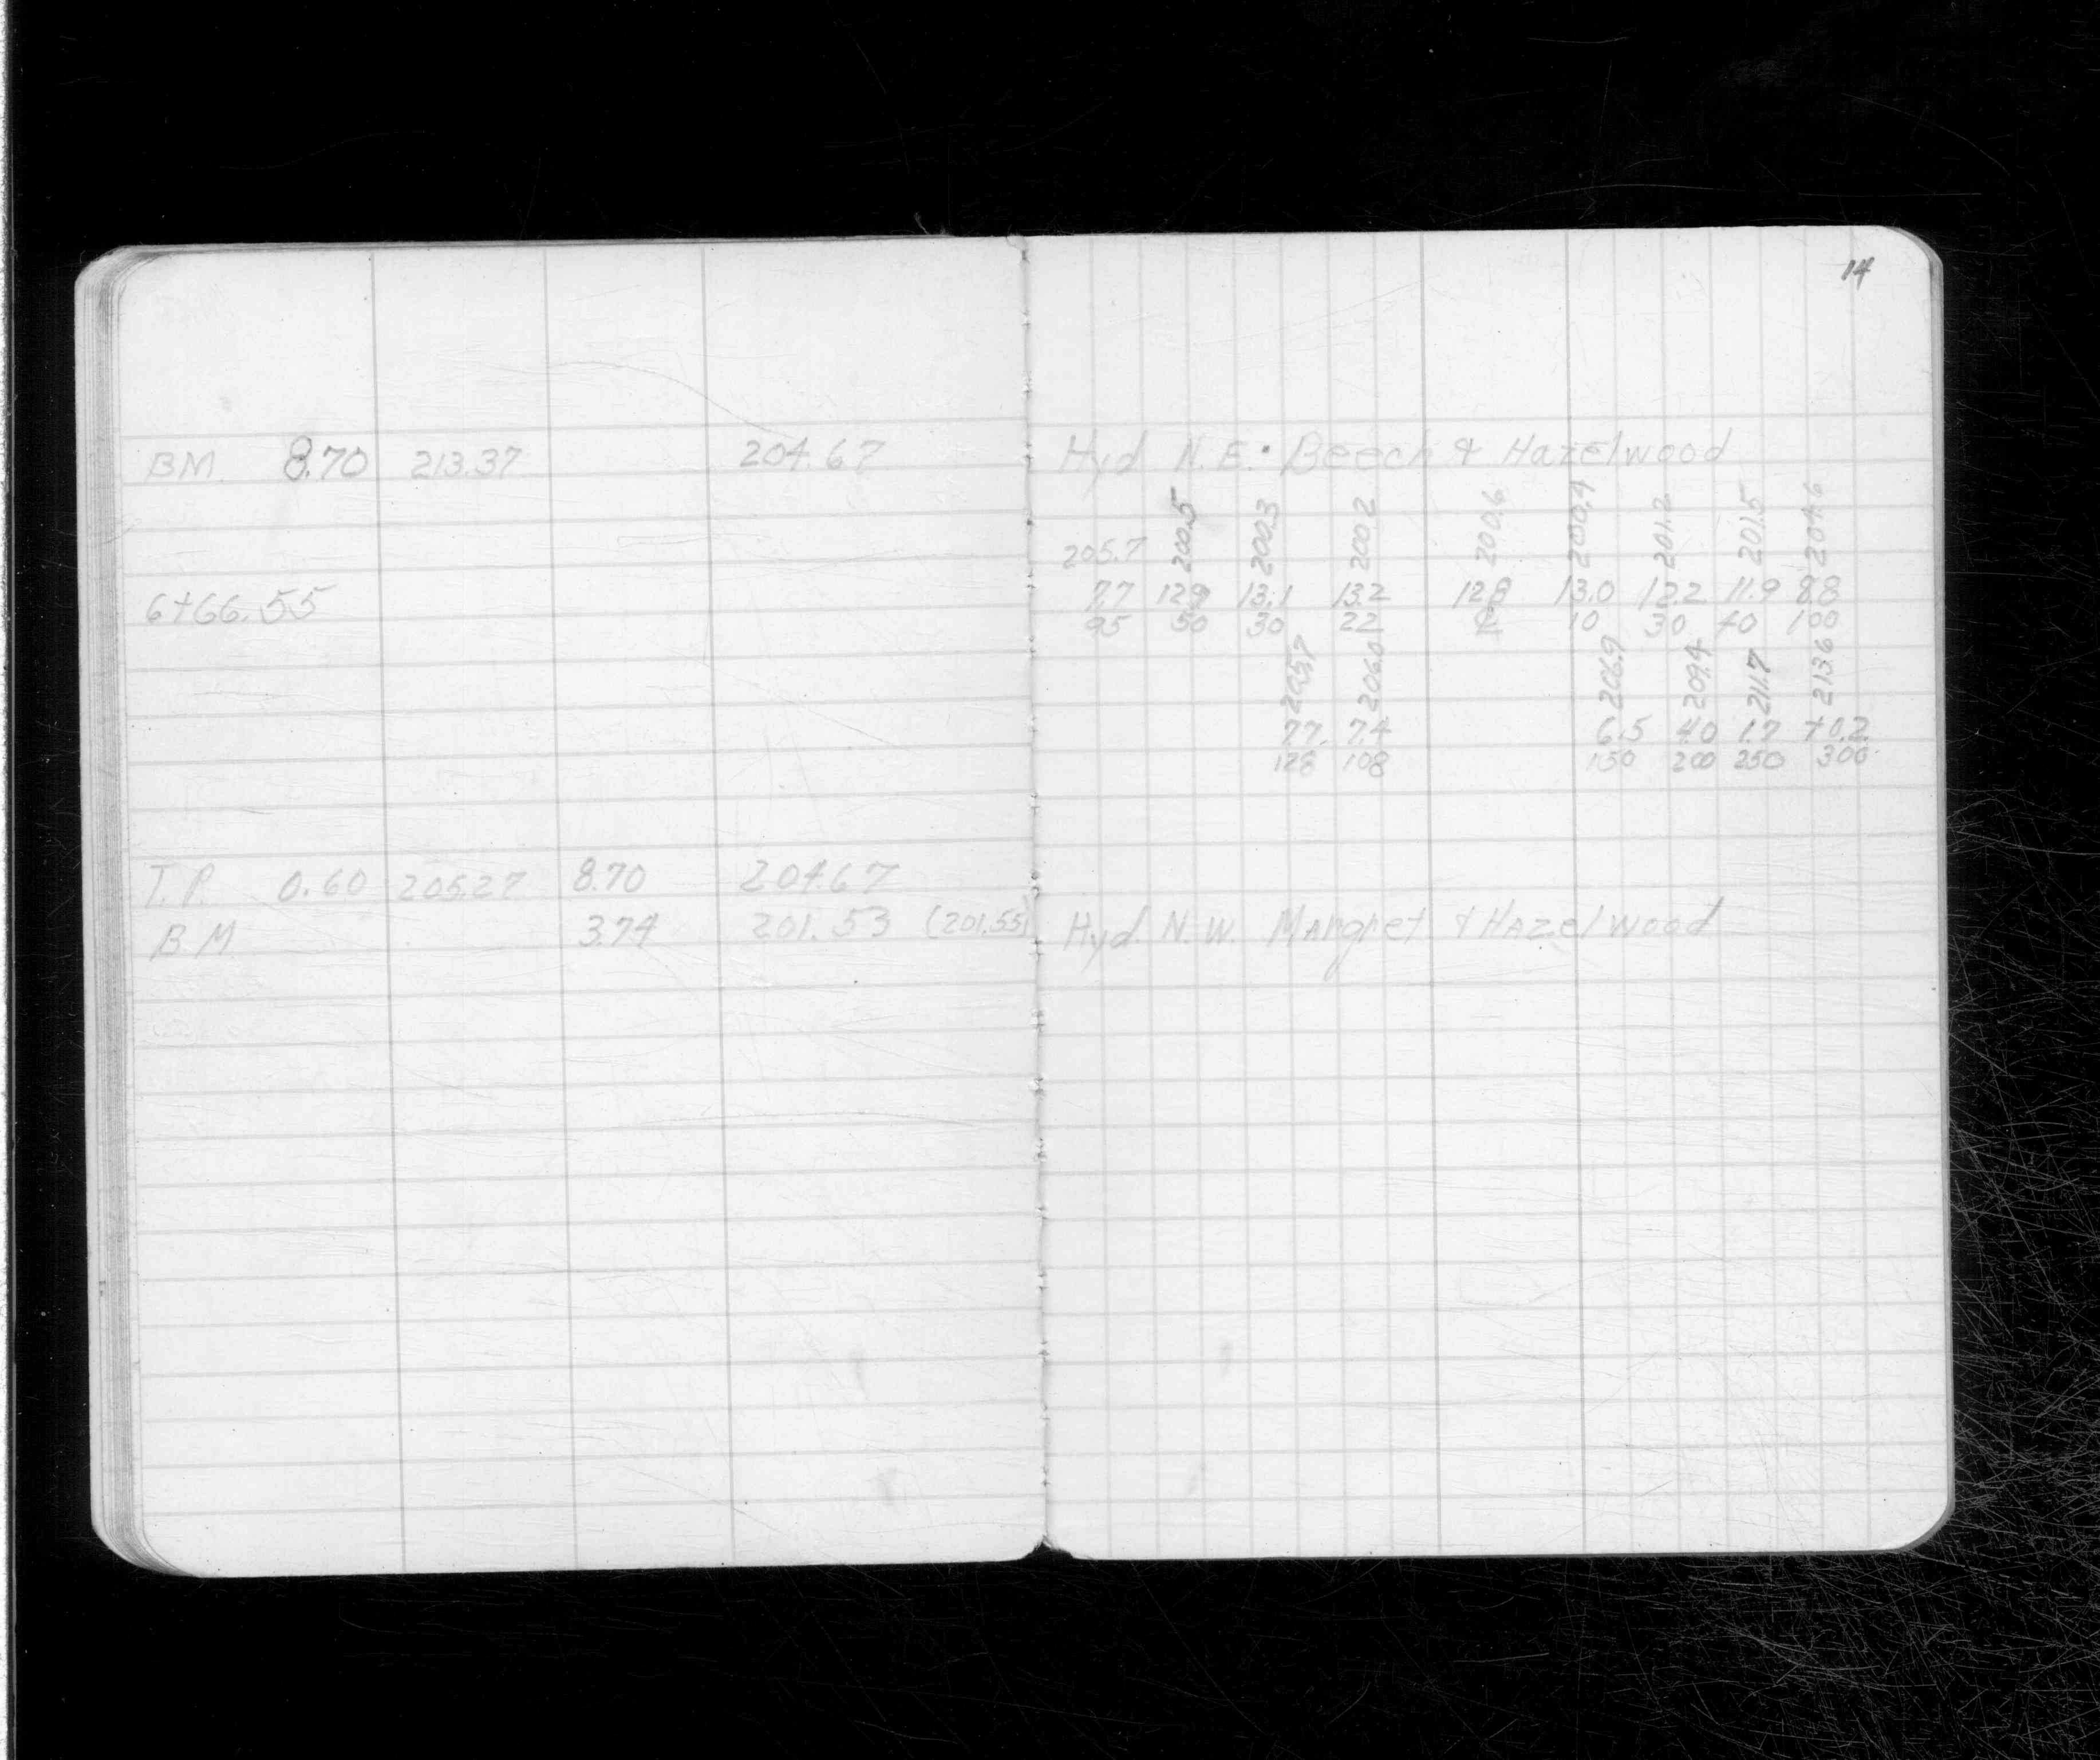 14
BM 8.70 213.37 204.67 Hyd N.E. Beech & Hazelwood
205.7 200.5 200.3 200.2 200.6 200.4 201.2 201.5 204.6
6+66.55 7.7 12.9 13.1 13.2 12.8 13.0 12.2 11.9 8.8
95 50 30 22 ℄ 10 30 40 100
205.7 206.0 206.9 209.4 211.7 213.6
7.7 7.4 6.5 4.0 1.7 +0.2
128 108 150 200 250 300
T.P. 0.60 205.27 8.70 204.67
BM 3.74 201.53 (201.55) Hyd. N.W. Margret & Hazelwood